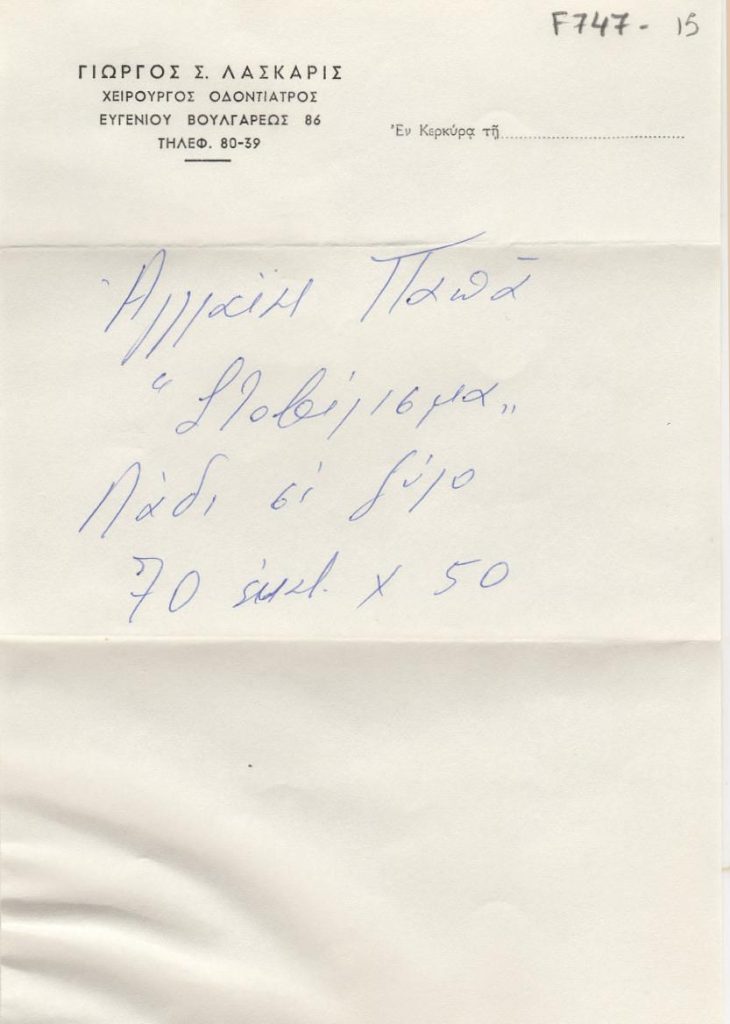 F747- 15
ΓΙΩΡΓΟΣ Σ. ΛΑΣΚΑΡΙΣ
ΧΕΙΡΟΥΡΓΟΣ ΟΔΟΝΤΙΑΤΡΟΣ
ΕΥΓΕΝΙΟΥ ΒΟΥΛΓΑΡΕΩΣ 86
ΤΗΛΕΦ. 80-39
Ἐν Κερκύρᾳ τῇ
Ἀγλαΐας Παπᾶ
"Στοβίλισμα"
Λάδι σέ ξύλο
70 ἑκατ. x 50